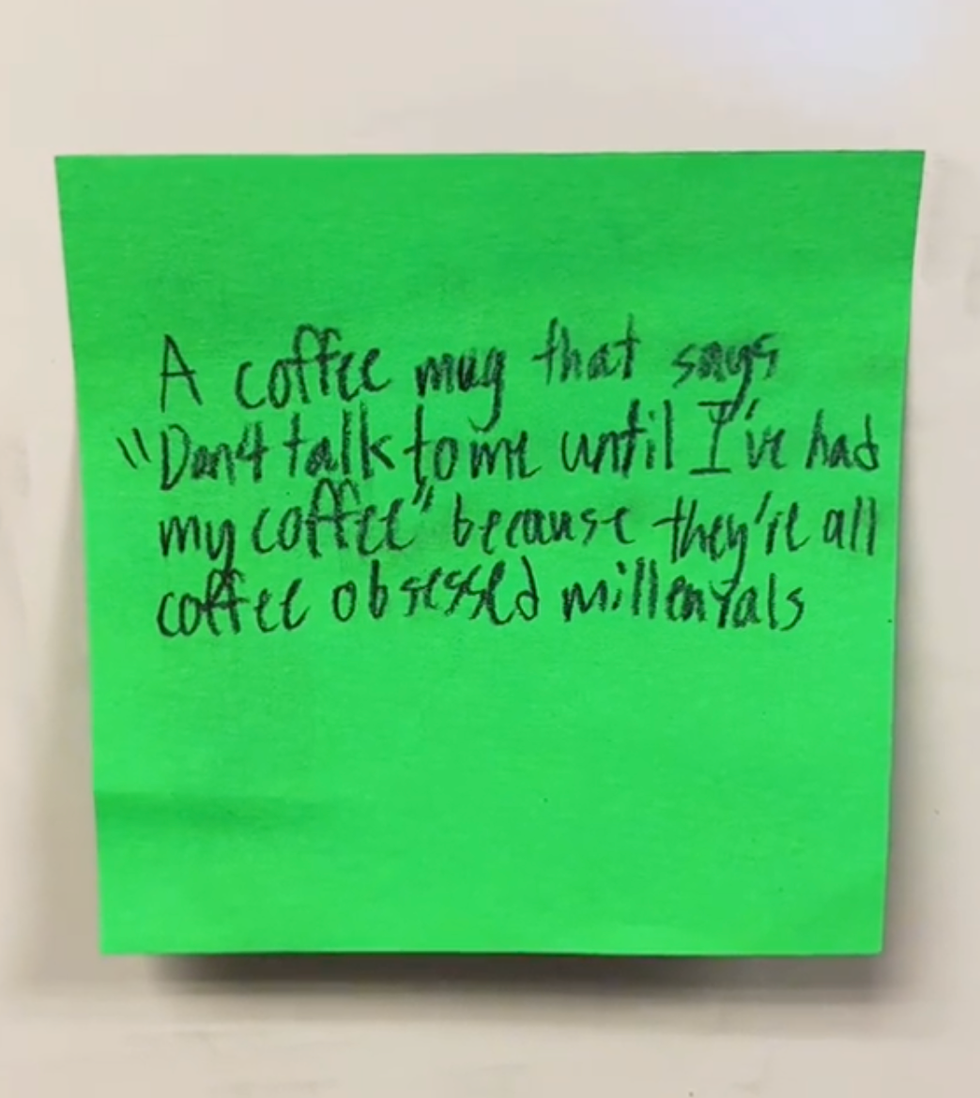 A coffee mug that says
"Don't talk to me until I've had
my coffee" because they're all
coffee obsessed millenyals